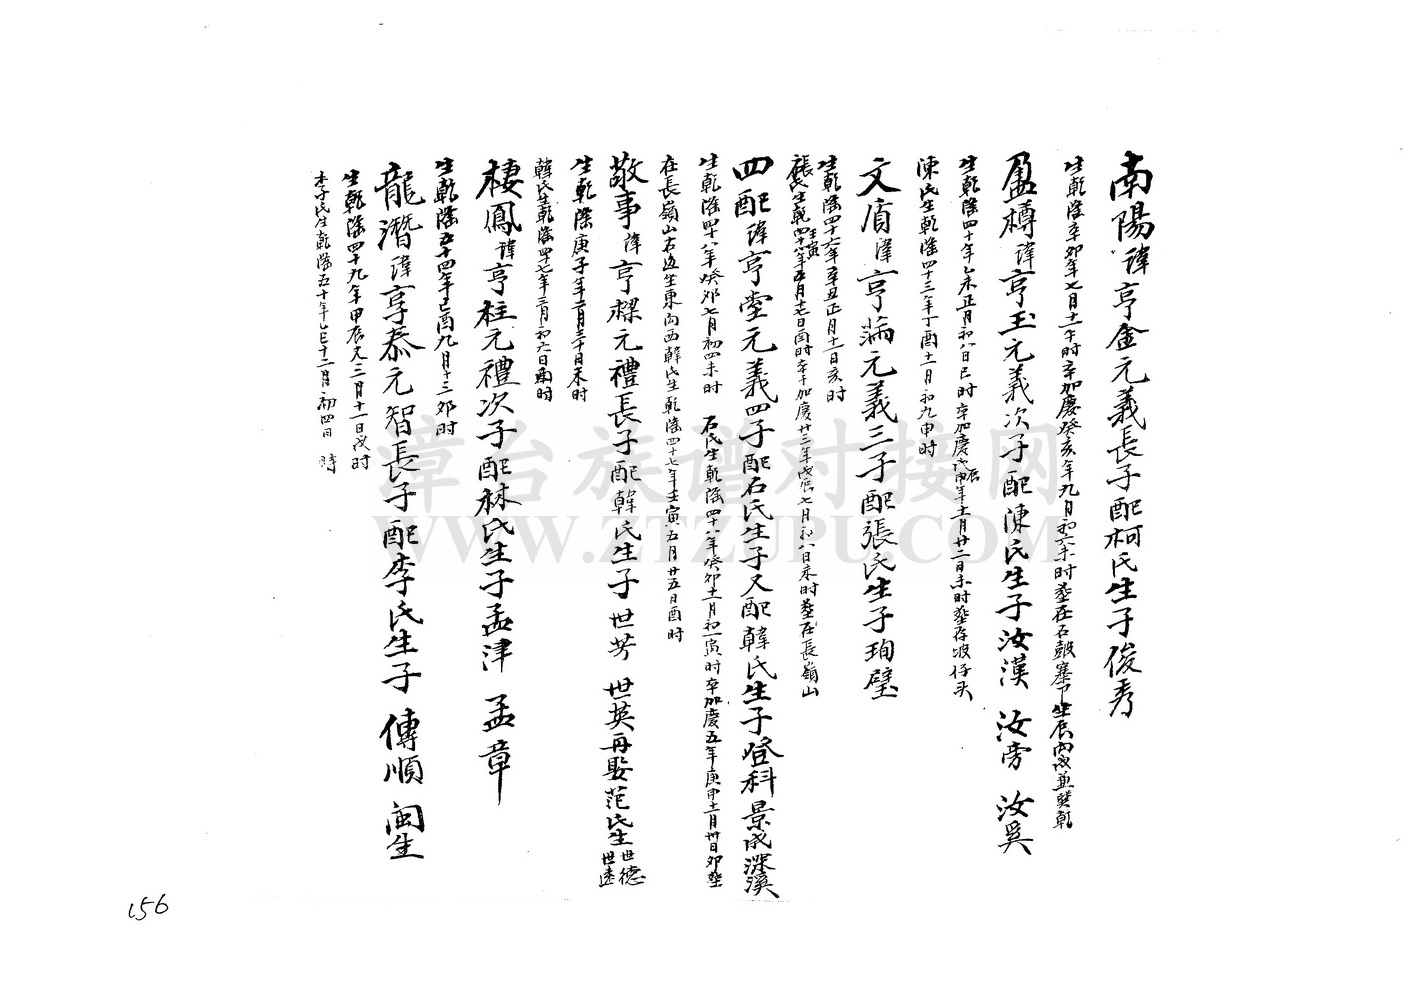 南陽諱亨金元義長子配柯氏生子俊秀
生乾隆辛卯年七月十一午时卒加慶癸亥年九月初六未时葬在石鼓寨下坐辰向戌兼巽乾
盈樽諱亨玉元義次子配陳氏生子汝漢 汝旁 汝奚
生乾隆四十年乙未正月初八日巳时卒加慶戊辰年十一月廿二日未时葬在坡仔头
陳氏生乾隆四十二年丁酉十一月初九申时
文盾諱亨滿元義三子配張氏生子珣璧
生乾隆四十六年辛丑正月十二日亥时
張氏生乾四十八年壬寅五月十七日酉时卒于加慶廿三年戊寅七月初八日未时葬在長嶺山
四配諱亨堂元義四子配石氏生子又配韓氏生子登科景成深溪
生乾隆四十八年癸卯七月初四未时 石氏生乾隆四十八年癸卯十一月初一寅时卒加慶五年庚申十一月卅日卯葬
在長嶺山右边坐東向西韓氏生乾隆四十七年壬寅五月廿五日酉时
敬事諱亨樑元禮長子配韓氏生子世芳 世英再娶范氏生世德世遠
生乾隆庚子年二月三十日未时
韓氏生乾隆四十七年三月初六日酉时
棲鳳諱亨柱元禮次子配林氏生子孟津 孟章
生乾隆五十四年己酉九月十三卯时
龍潛諱亨泰元智長子配李氏生子 傳順 闽生
生乾隆四十九年甲辰又三月十一日戌时
李氏生乾隆五十年乙巳十二月初四日 時
漳台族谱对接网
WWW.ZTZUPU.COM
156